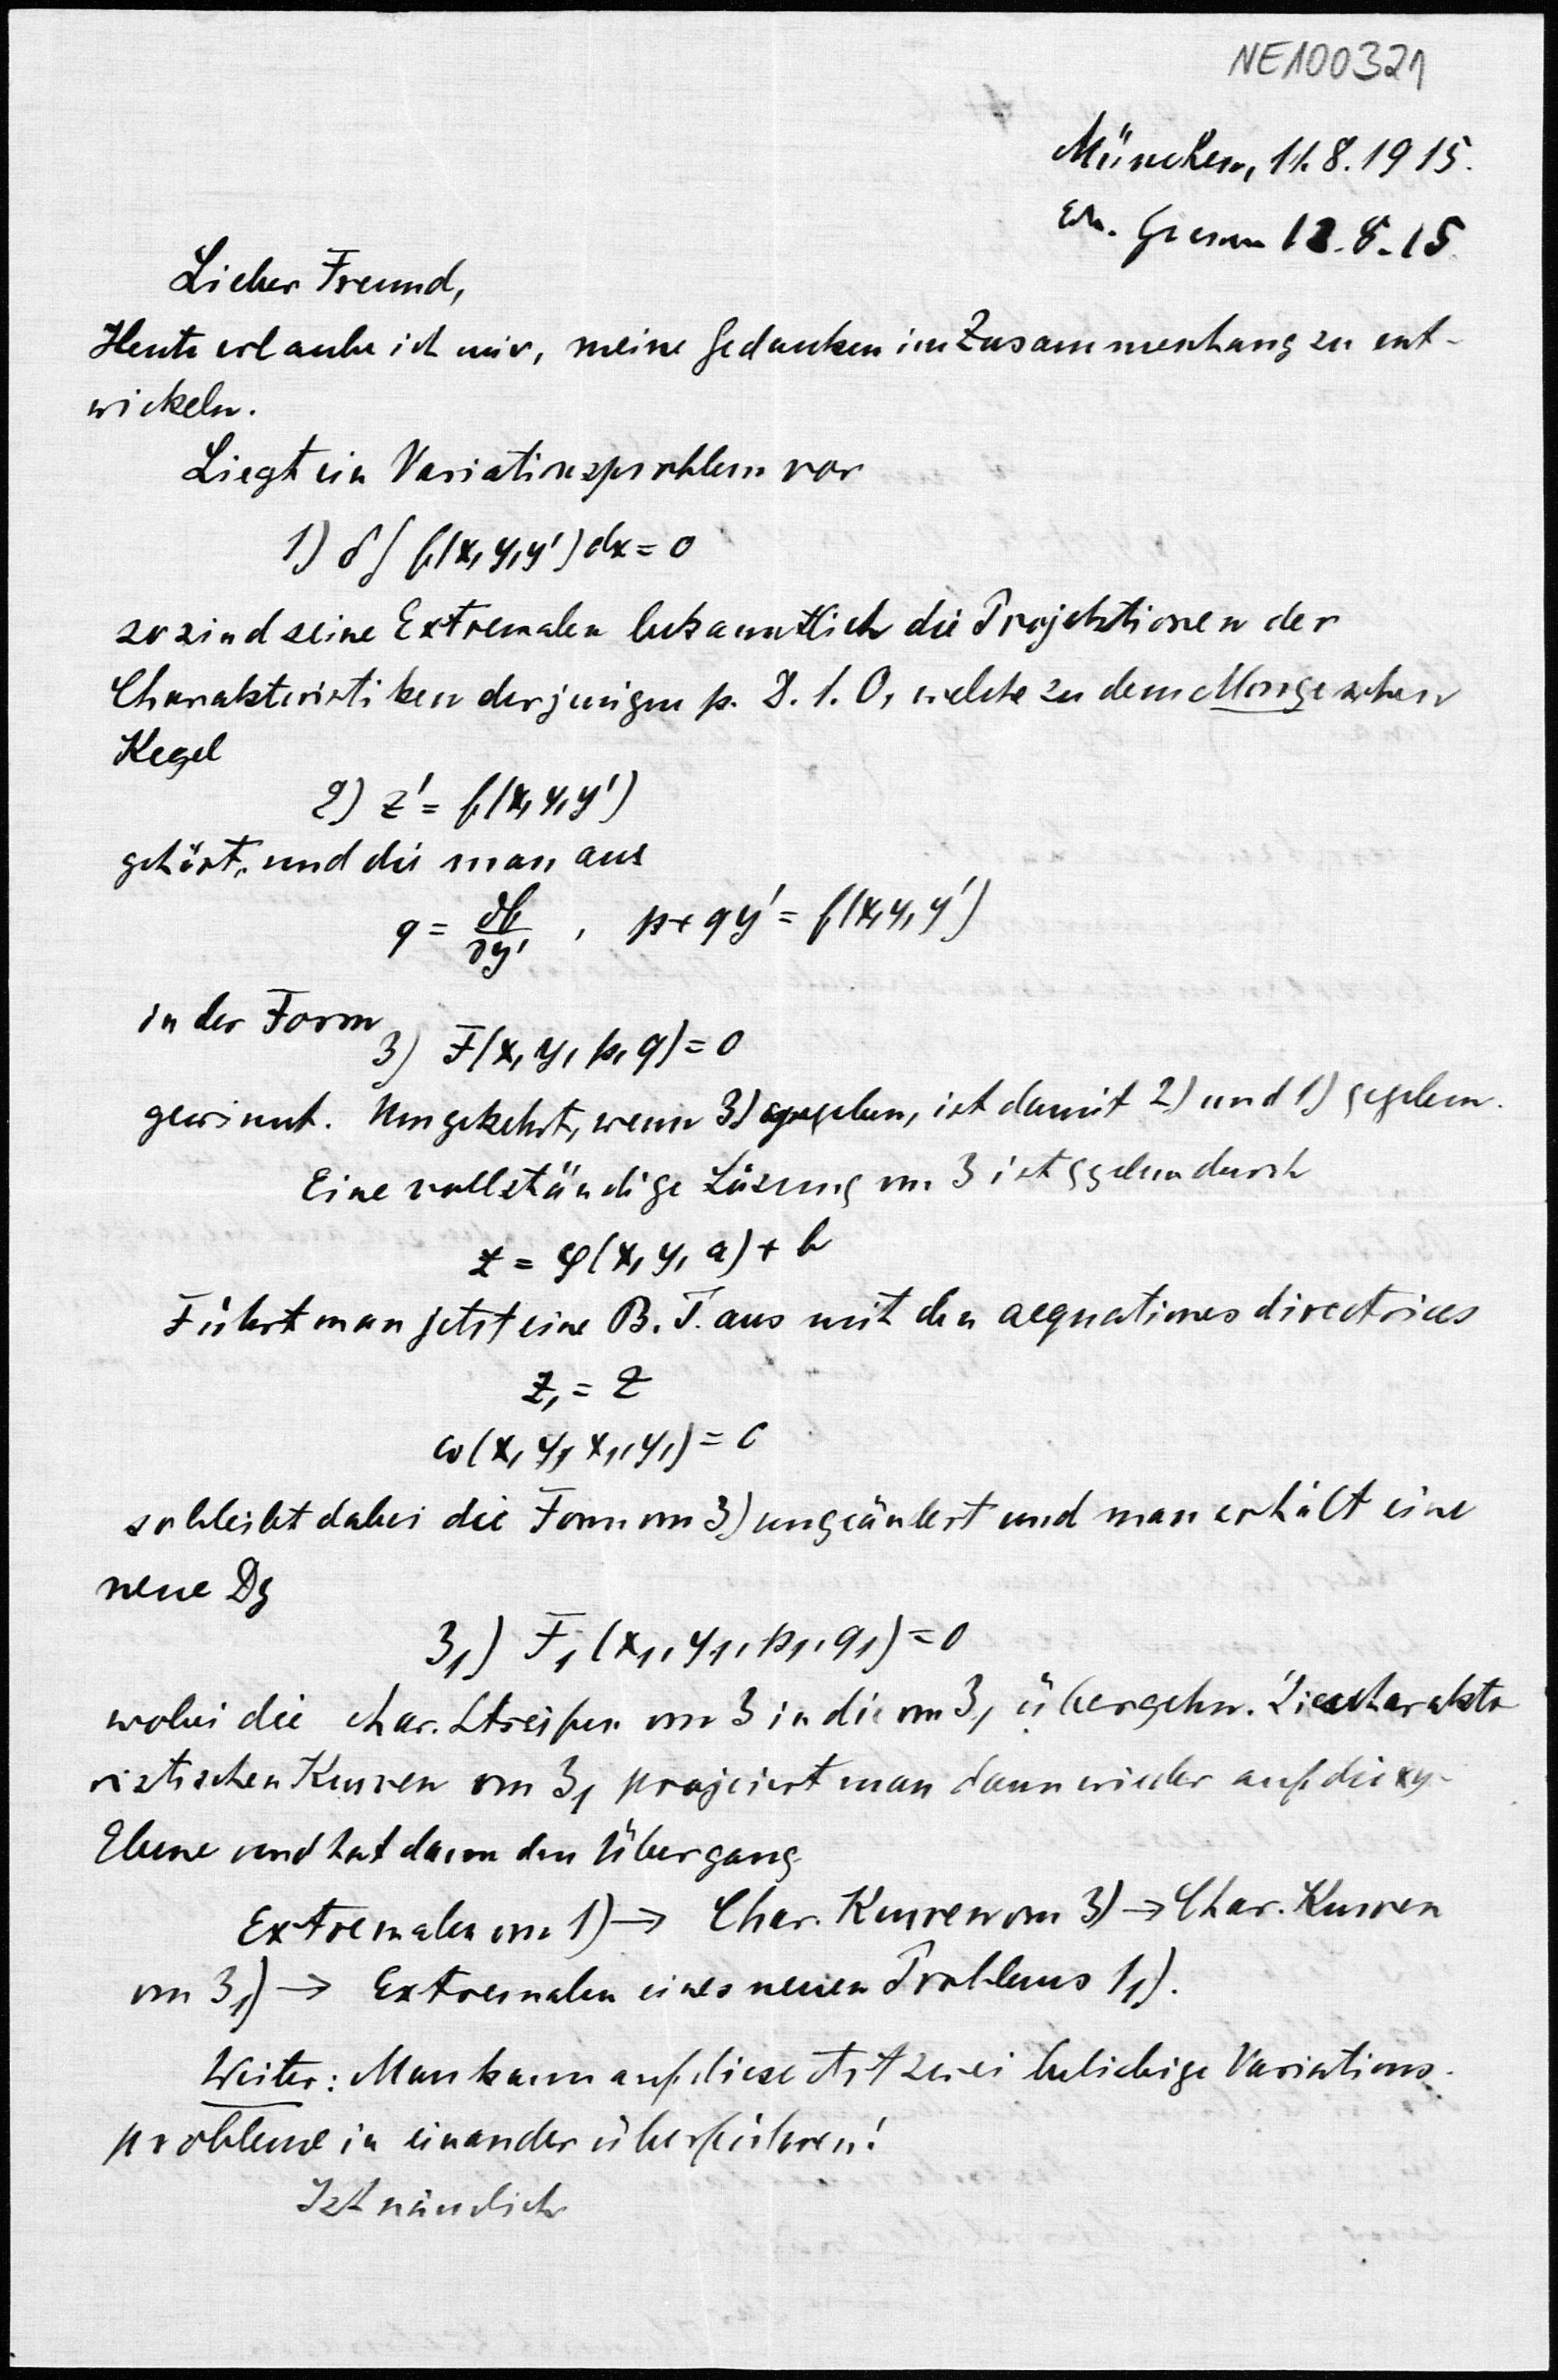 NE100321
München, 11.8.1915.
12.8.15.
Lieber Freund,
Heute erlaube ich mir, meine Gedanken im Zusammenhang zu ent-
wickeln.
Liegt ein Variationsproblem vor
1) δ∫ f(x, y, y') dx = 0
so sind seine Extremalen bekanntlich die Projektionen der
Charakteristiken derjenigen p. D. 1. O, welche zu dem Mongeschen
Kegel
2) z' = f(x, y, y')
gehört, und die man aus
q = ∂f/∂y' , p + qy' = f(x, y, y')
in der Form
3) F(x, y, p, q) = 0
gewinnt. Umgekehrt, wenn 3) gegeben, ist damit 2) und 1) gegeben.
Eine vollständige Lösung von 3 ist gegeben durch
z = φ(x, y, a) + b
Führt man jetzt eine B. T. aus mit den aequationes directrices
z₁ = z
ω(x, y, x₁, y₁) = c
so bleibt dabei die Form von 3) ungeändert und man erhält eine
neue Dg
3₁) F₁(x₁, y₁, p₁, q₁) = 0
wobei die char. Streifen von 3 in die von 3₁ übergehn. Die charakte
ristischen Kurven von 3₁ projiciert man dann wieder auf die xy-
Ebene und hat dann den Übergang
Extremalen von 1) → Char. Kurven von 3) → Char. Kurven
von 3₁) → Extremalen eines neuen Problems 1₁).
Weiter: Man kann auf diese Art zwei beliebige Variations-
probleme in einander überführen!
Ist nämlich